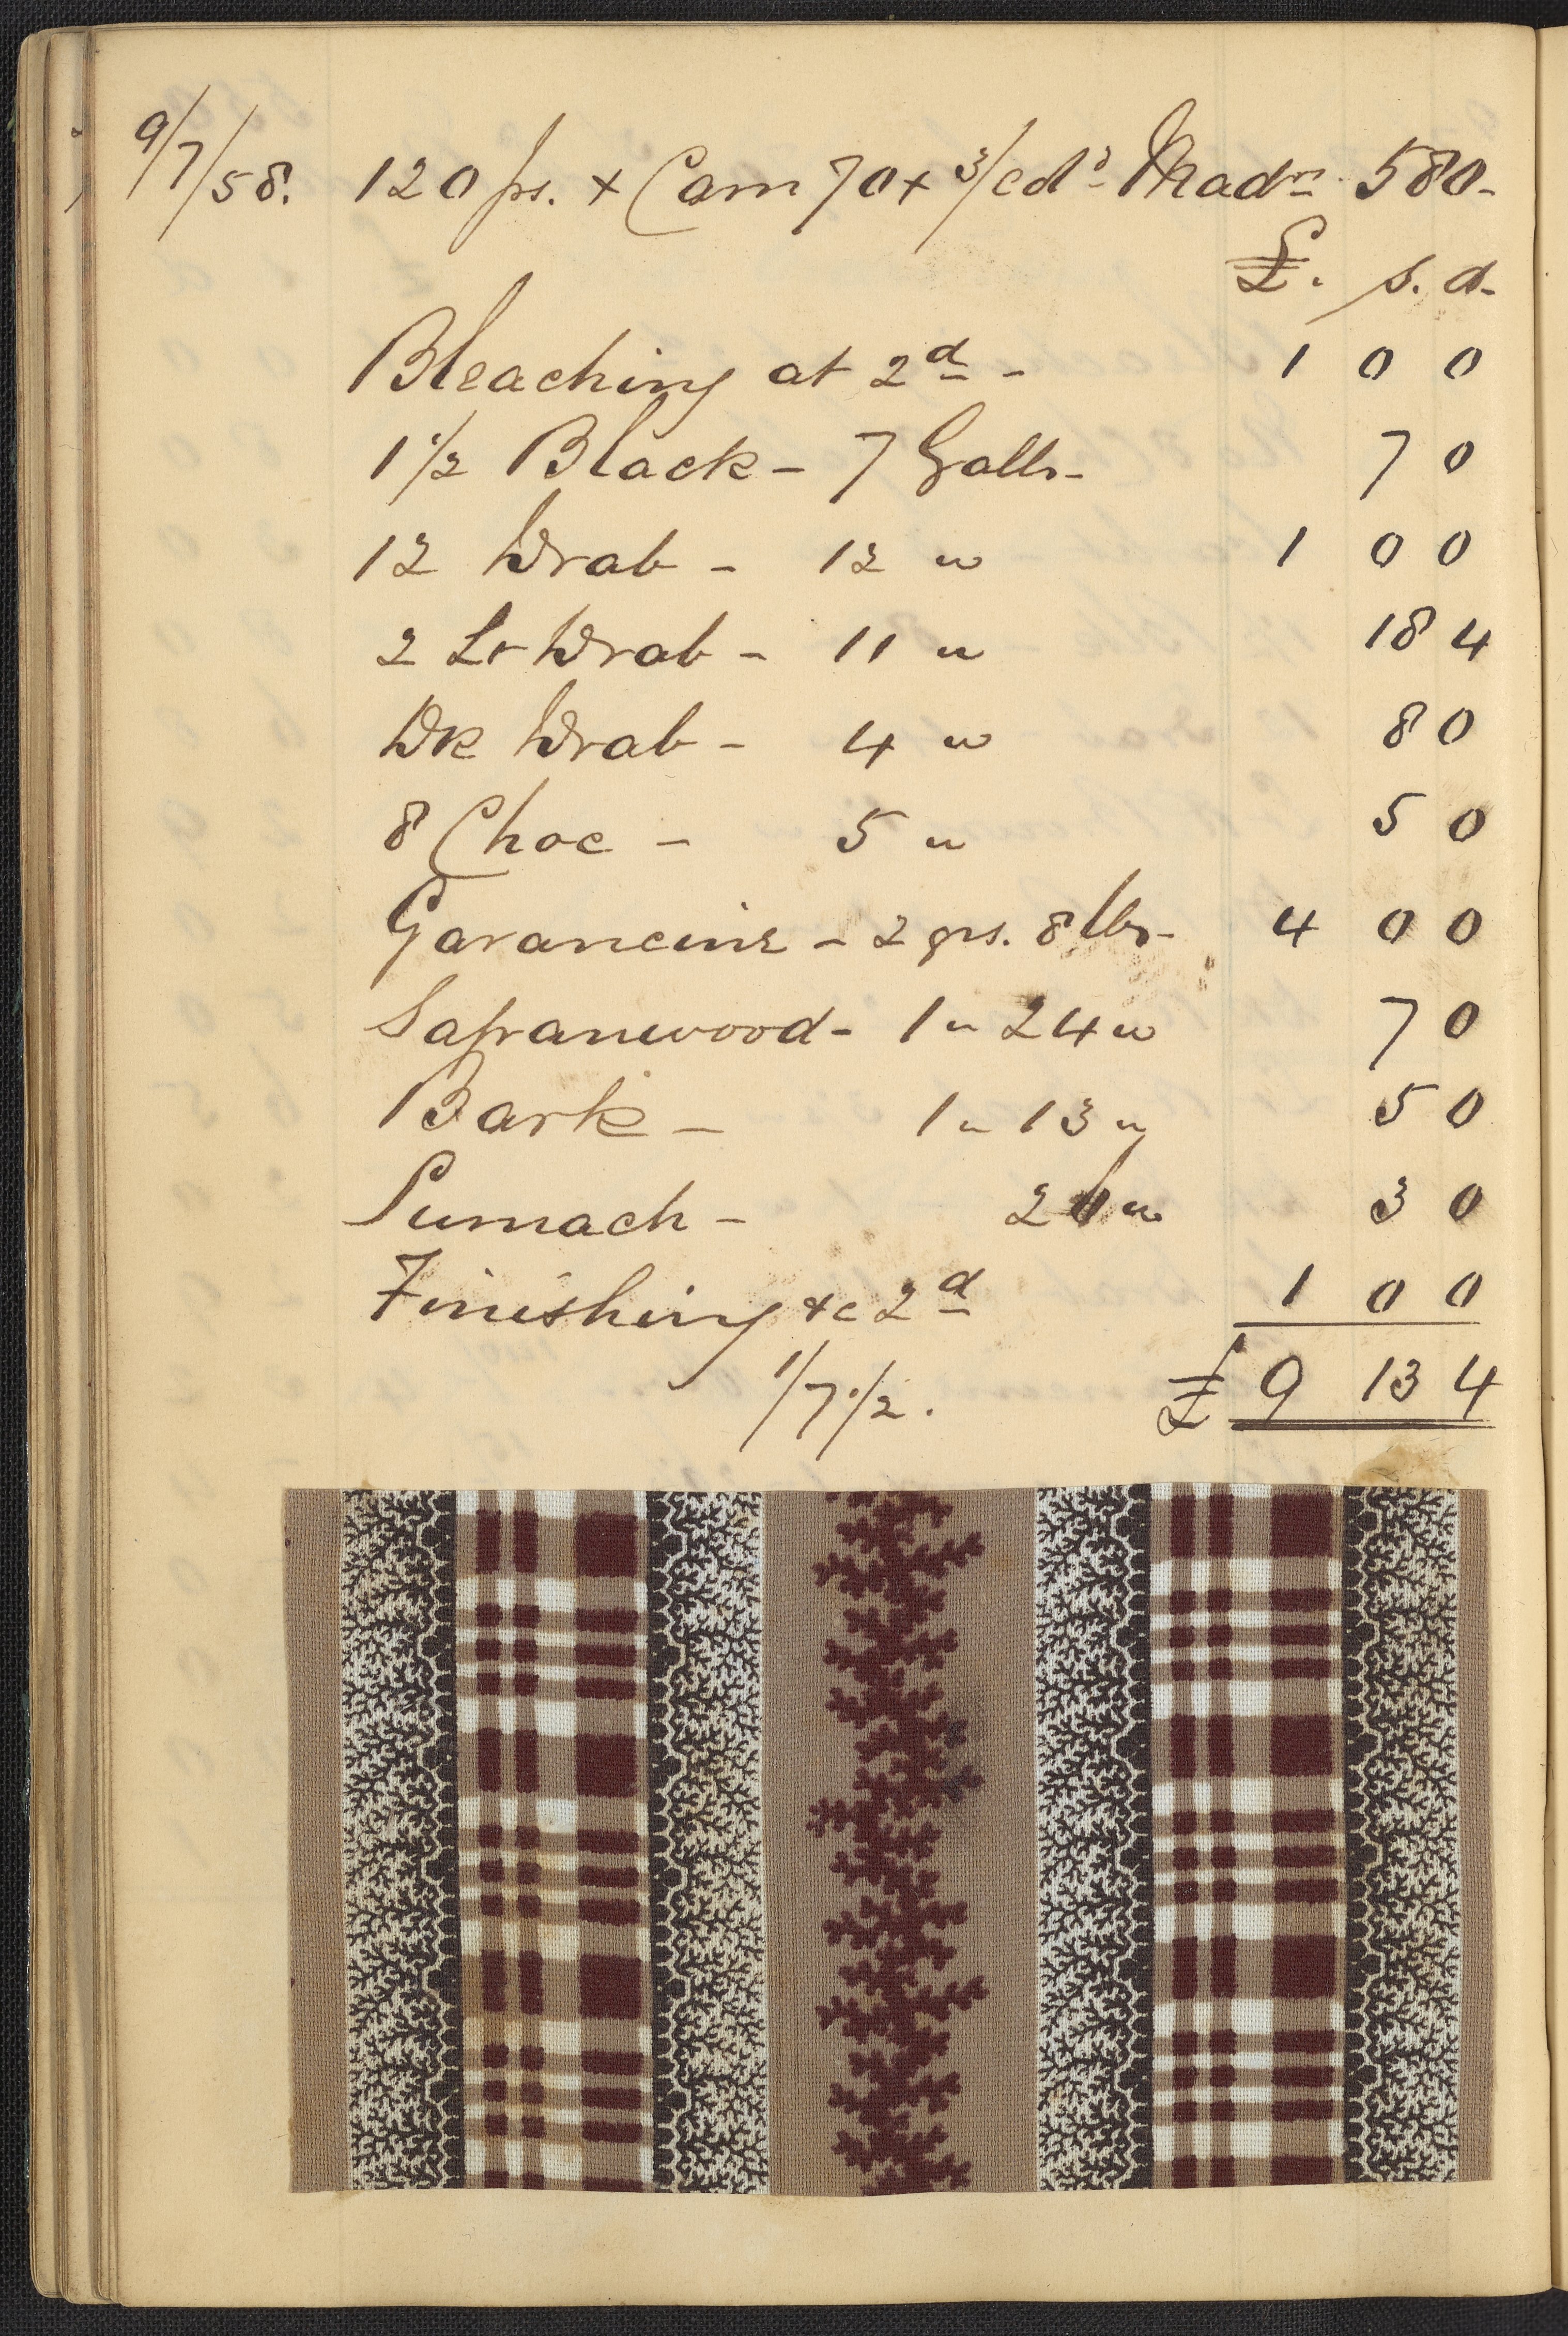 9/7/58. 120 ps. + Cam 70 + 3/cd⁠s Madn. 580-
£. s. d.
Bleaching at 2d - 1 0 0
1 1/2 Black - 7 Galls - 7 0
12 Drab - 12 " 1 0 0
2 Lt Drab - 11 " 18 4
Dk Drab - 4 " 8 0
8 Choc - 5 " 5 0
Garancine - 2 qrs. 8 lbs - 4 0 0
Sapanwood - 1 " 24 " 7 0
Bark - 1 " 13 " 5 0
Sumach - 20 " 3 0
Finishing &c 2d 1 0 0
1/7 1/2. £ 9 13 4